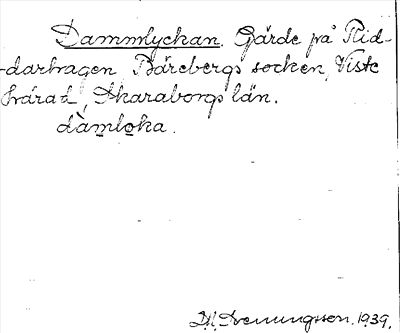 Dammlyckan. Gärde på Rid-
-darhagen Bärebergs socken, Viste
härad, Skaraborgs län.
dàmlọka.
D. H. Svenungsson. 1939.